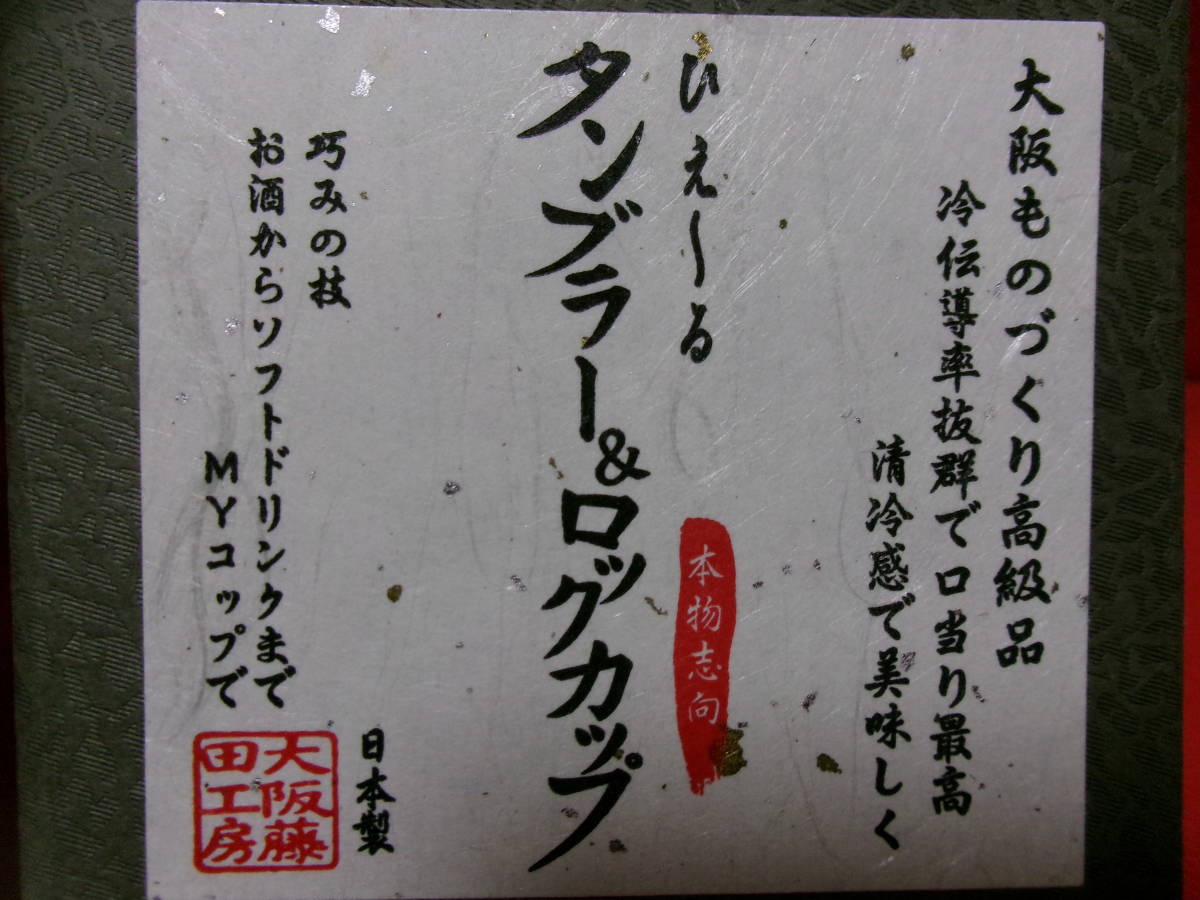 大阪ものづくり高級品
冷伝導率抜群で口当り最高
清冷感で美味しく
ひえ〜る
本物志向
タンブラー&ロックカップ
日本製
巧みの技
お酒からソフトドリンクまで
MYコップで
大阪藤
田工房